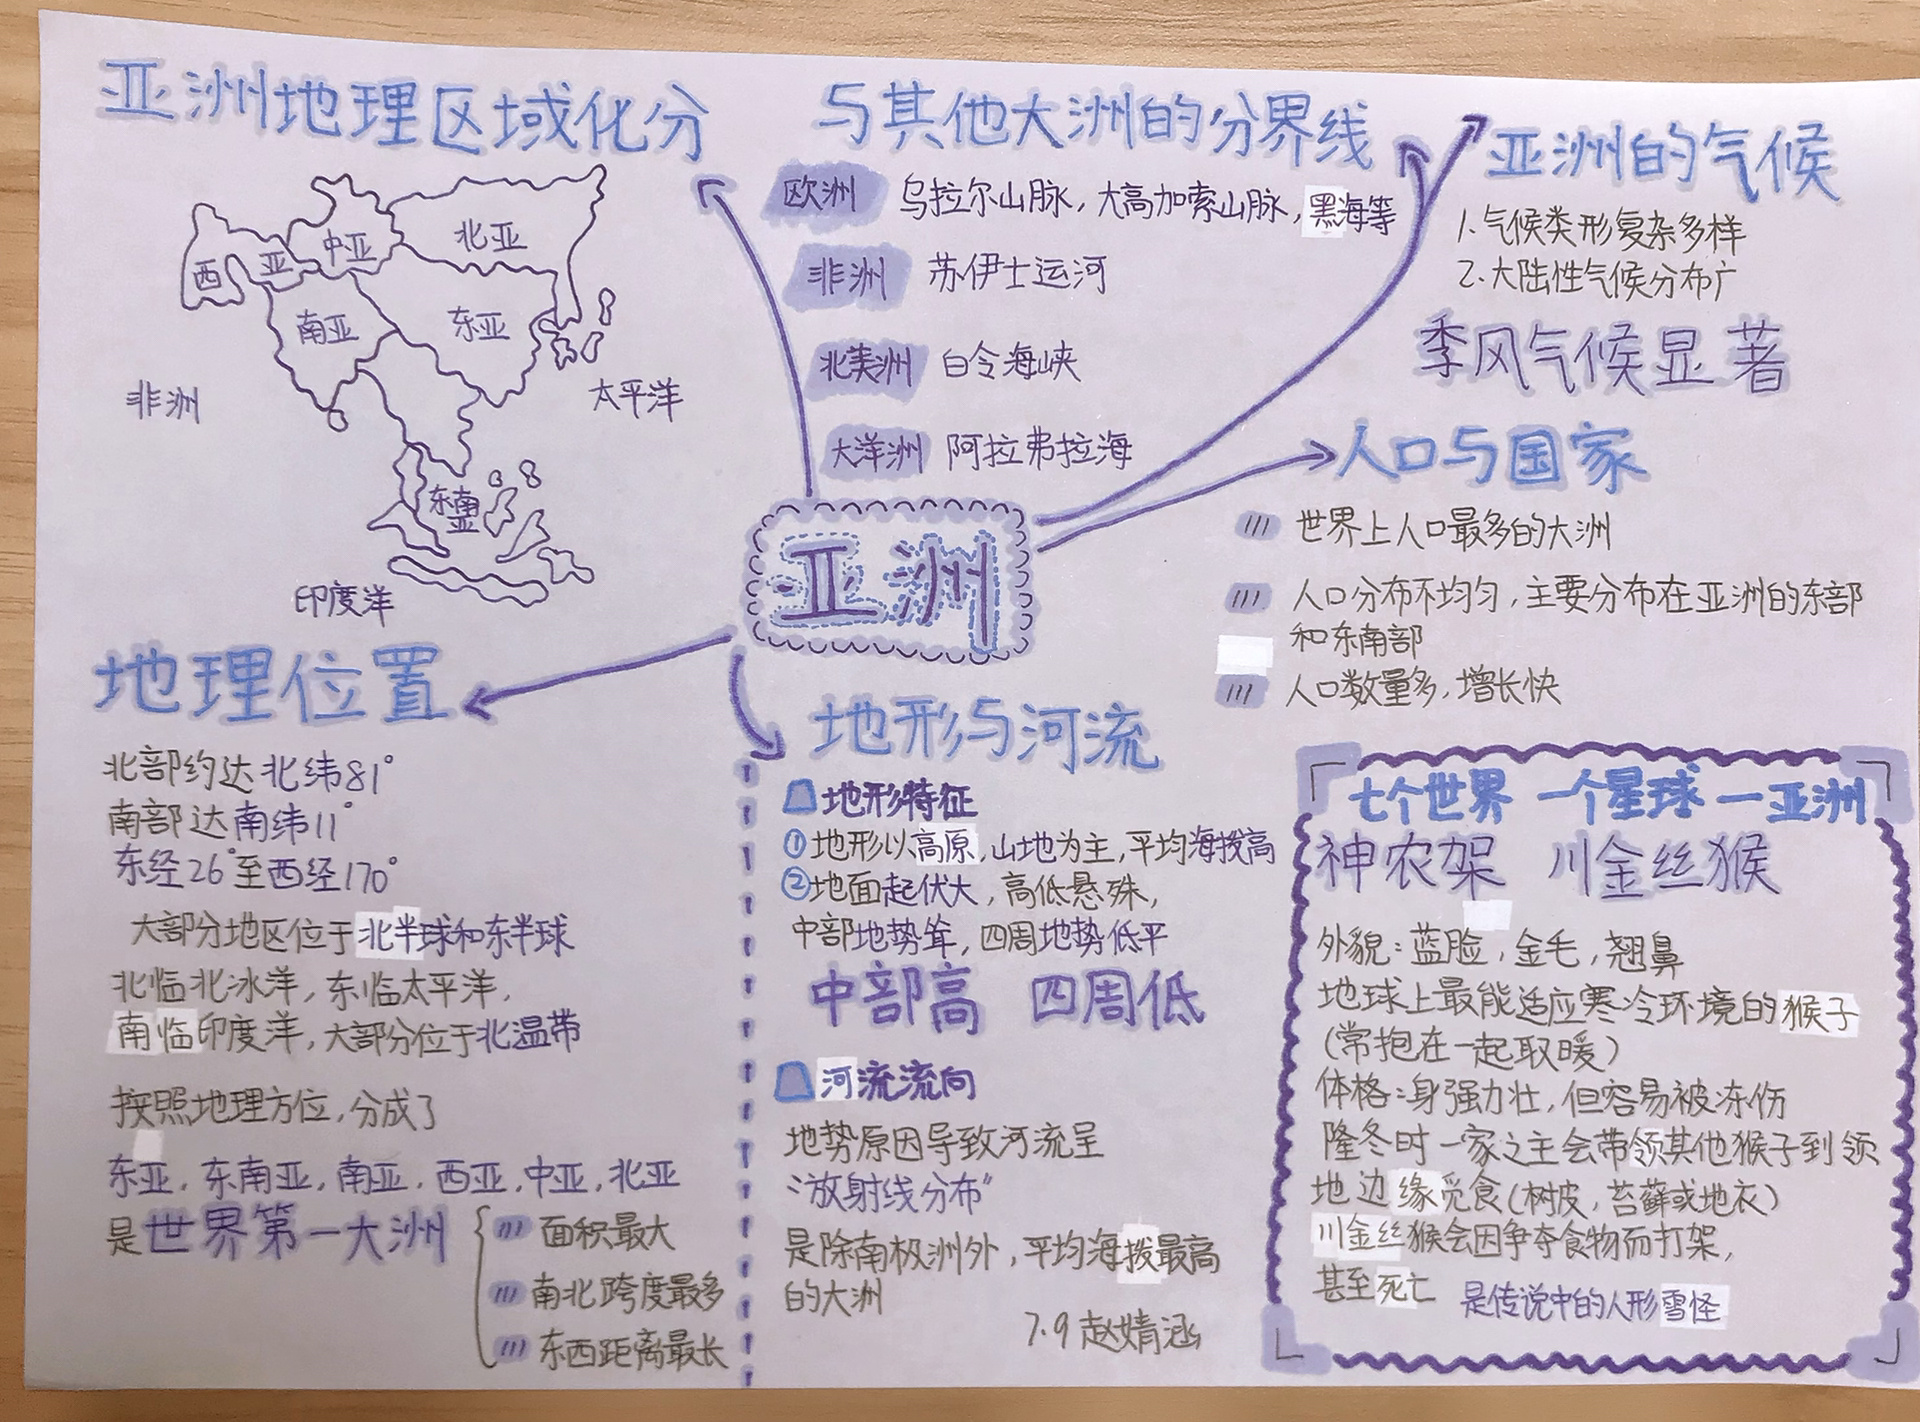 亚洲地理区域化分
西
亚
中亚
北亚
南亚
东亚
东南亚
非洲
太平洋
印度洋
与其他大洲的分界线
欧洲 乌拉尔山脉,大高加索山脉,黑海等
非洲 苏伊士运河
北美洲 白令海峡
大洋洲 阿拉弗拉海
亚洲的气候
1.气候类形复杂多样
2.大陆性气候分布广
季风气候显著
人口与国家
世界上人口最多的大洲
人口分布不均匀,主要分布在亚洲的东部
和东南部
人口数量多,增长快
亚洲
地理位置
北部约达北纬81°
南部达南纬11°
东经26°至西经170°
大部分地区位于北半球和东半球
北临北冰洋,东临太平洋,
南临印度洋,大部分位于北温带
按照地理方位,分成了
东亚,东南亚,南亚,西亚,中亚,北亚
是世界第一大洲
面积最大
南北跨度最多
东西距离最长
地形与河流
地形特征
①地形以高原,山地为主,平均海拨高
②地面起伏大,高低悬殊,
中部地势耸,四周地势低平
中部高 四周低
河流流向
地势原因导致河流呈
“放射线分布”
是除南极洲外,平均海拨最高
的大洲
7.9赵婧涵
七个世界 一个星球 一亚洲
神农架 川金丝猴
外貌:蓝脸,金毛,翘鼻
地球上最能适应寒冷环境的猴子
(常抱在一起取暖)
体格:身强力壮,但容易被冻伤
隆冬时一家之主会带领其他猴子到领
地边缘觅食(树皮,苔藓或地衣)
川金丝猴会因争夺食物而打架,
甚至死亡 是传说中的人形雪怪